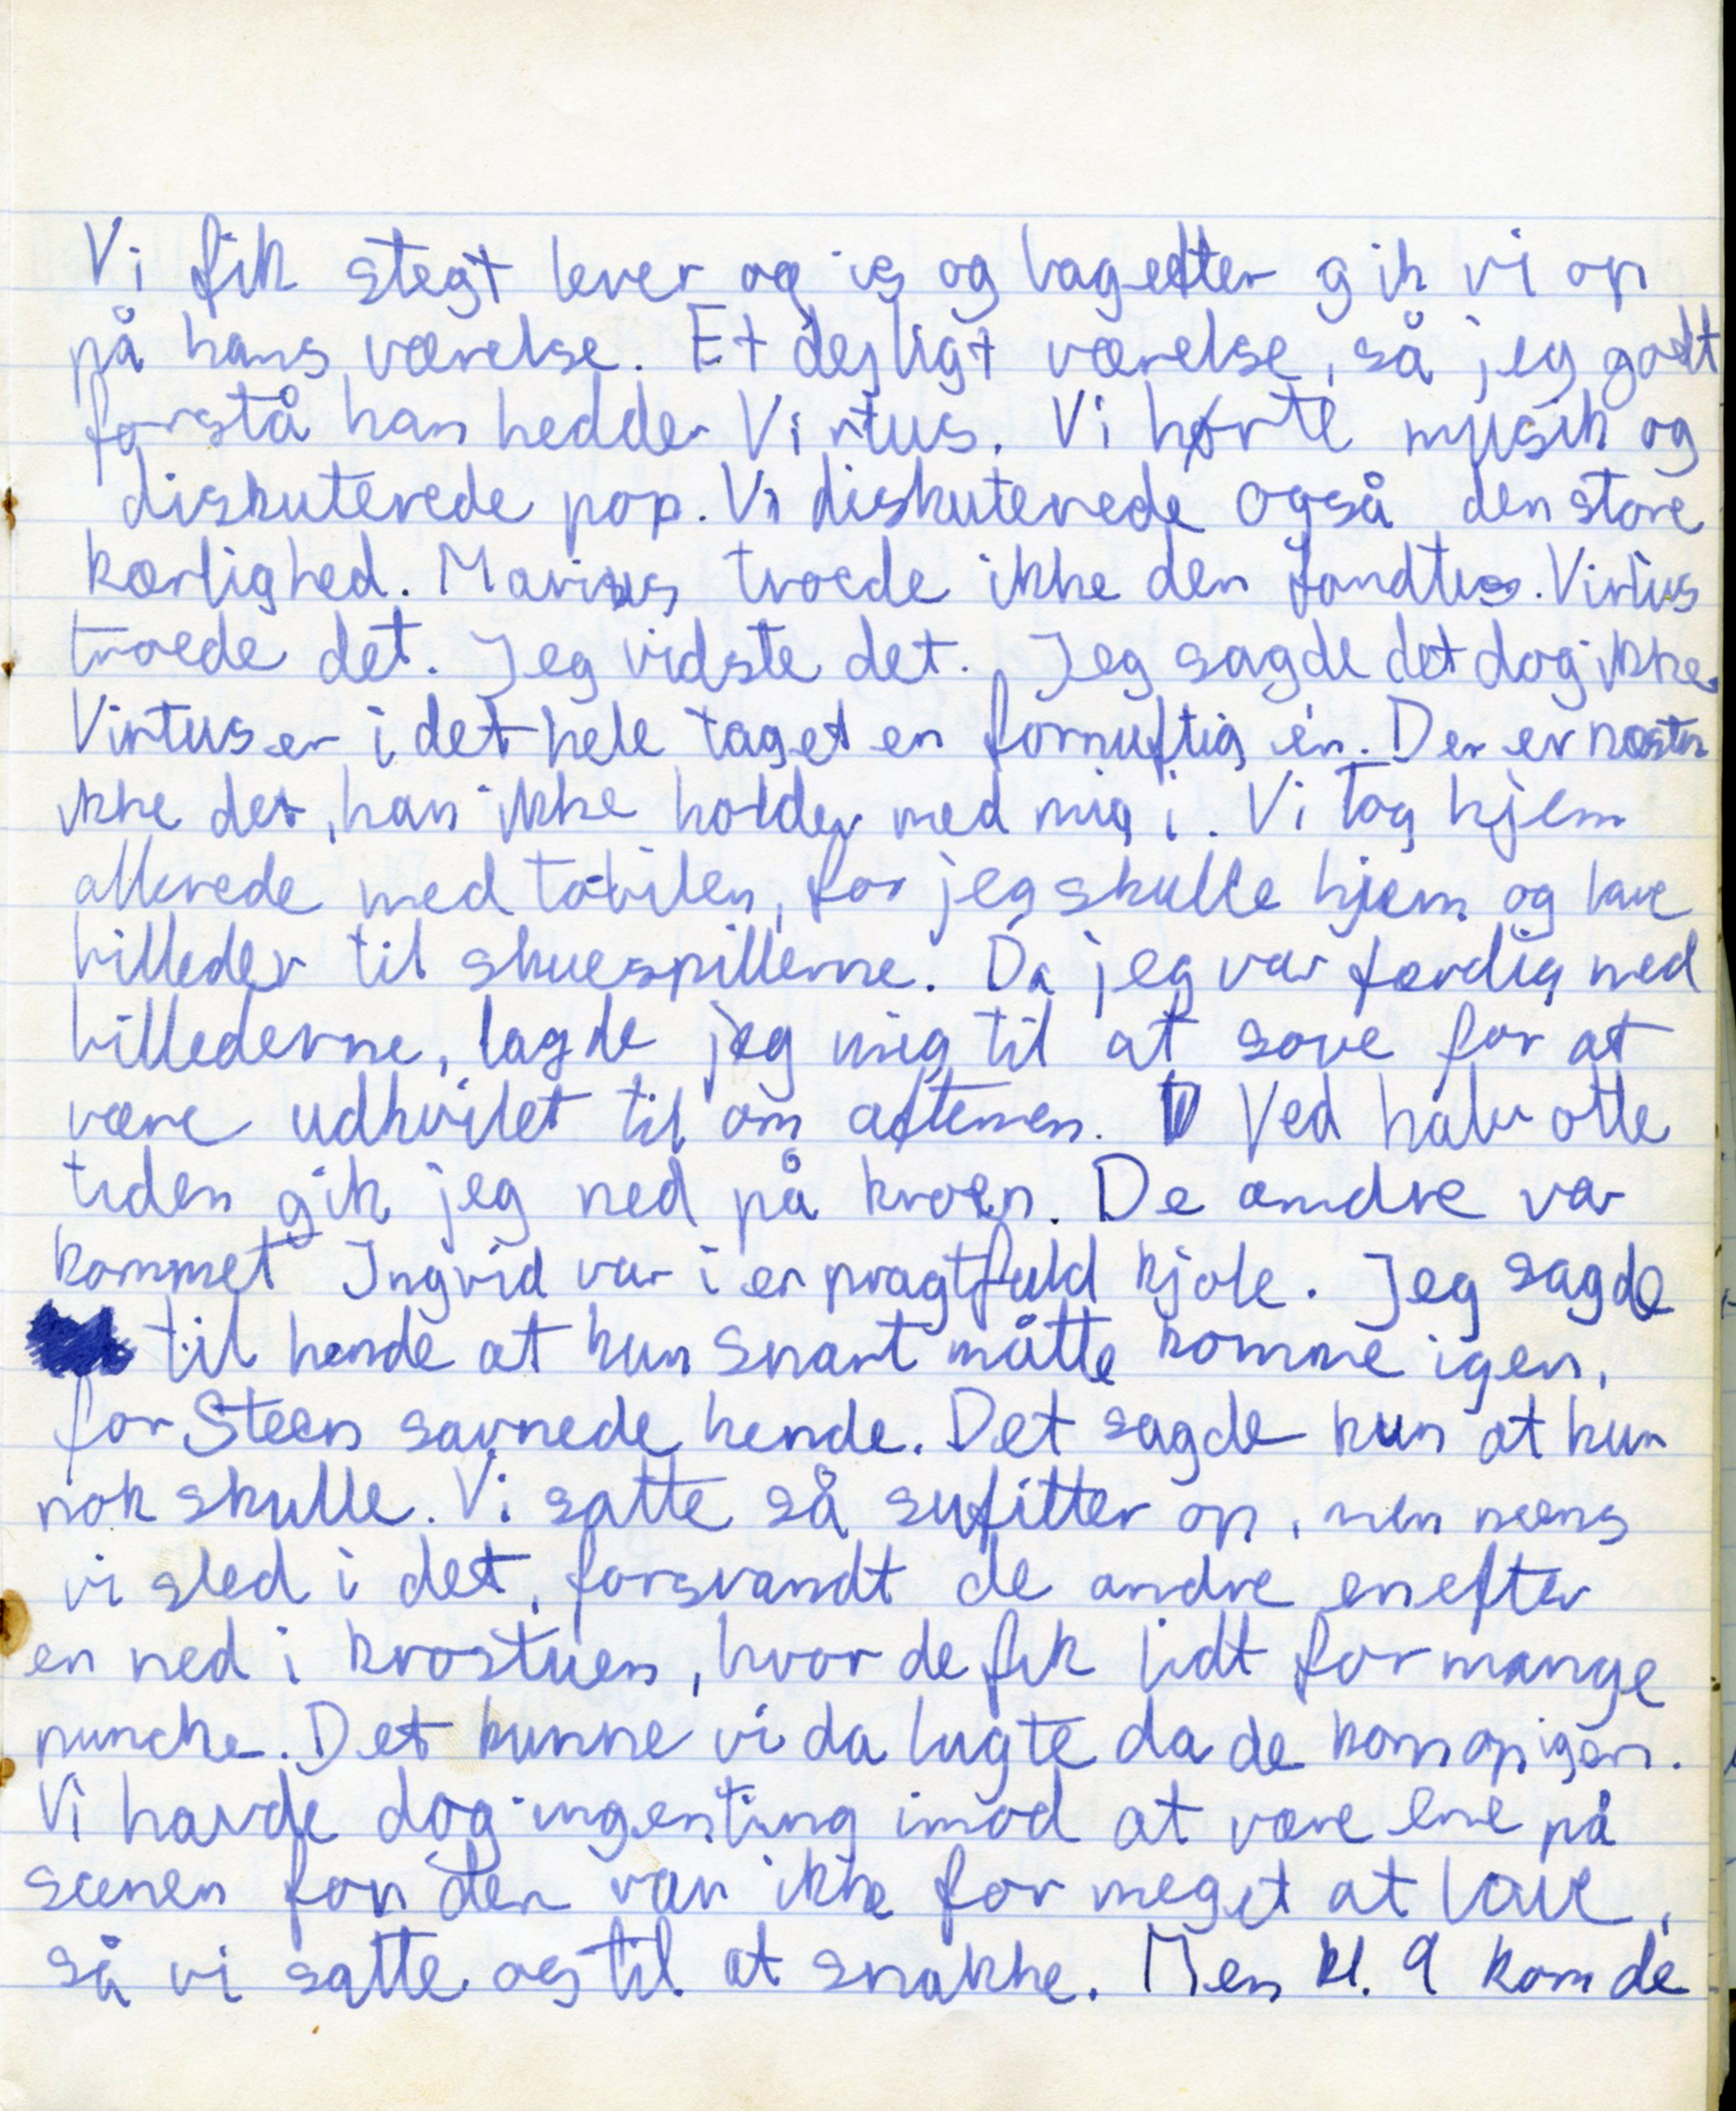 Vi fik stegt lever og is og bagefter gik vi op
på hans værelse. Et dejligt værelse, så jeg godt
forstå han hedder Virtus. Vi hørte musik og
diskuterede pop. Vi diskuterede også den store
kærlighed. Marius troede ikke den fandtes. Virtus
troede det. Jeg vidste det. Jeg sagde det dog ikke.
Virtus er i det hele taget en fornuftig én. Der er næsten
ikke det, han ikke holder med mig i. Vi tog hjem
allerede med tobilen, for jeg skulle hjem og lave
billeder til skuespillerne. Da jeg var færdig med
billederne, lagde jeg mig til at sove for at
være udhvilet til om aftenen. Ved halv otte
tiden gik jeg ned på kroen. De andre var
kommet Ingrid var i en pragtfuld kjole. Jeg sagde
til hende at hun snart måtte komme igen,
for Steen savnede hende. Det sagde hun at hun
nok skulle. Vi satte så sufitter op, men mens
vi sled i det, forsvandt de andre en efter
en ned i krostuen, hvor de fik lidt for mange
puncher. Det kunne vi da lugte da de kom op igen.
Vi havde dog ingenting imod at være ene på
scenen for der var ikke for meget at lave,
så vi satte os til at snakke. Men kl. 9 kom de